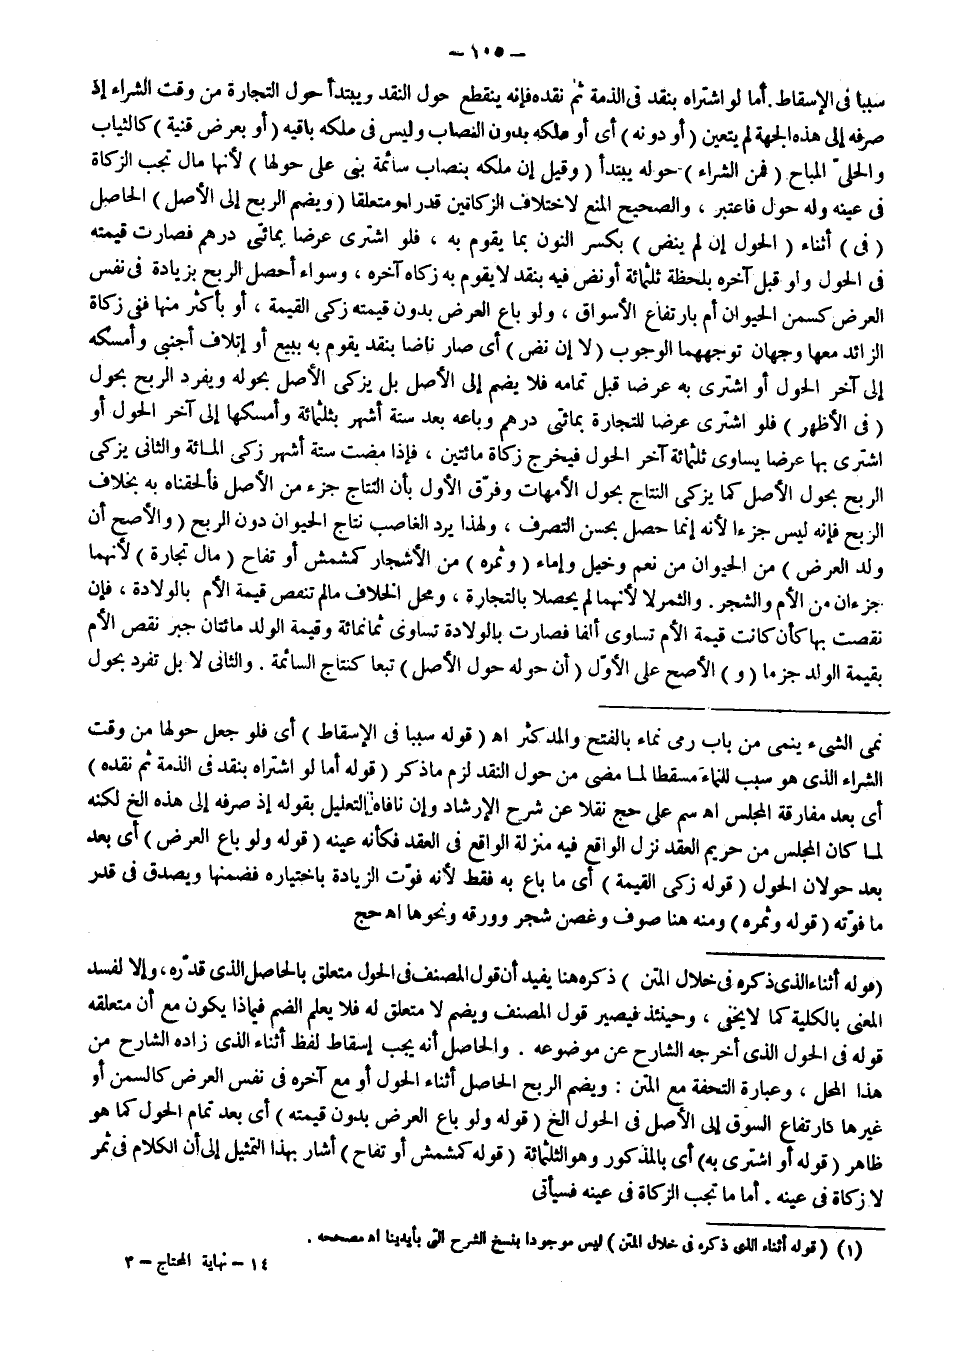 — ١٠٥ —
سببا فى الإسقاط. أما لو اشتراه بنقد فى الذمة ثم نقده فإنه ينقطع حول النقد ويبتدأ حول التجارة من وقت الشراء إذ
صرفه إلى هذه الجهة لم يتعين ( أو دونه ) أى أو ملكه بدون النصاب وليس فى ملكه باقيه ( أو بعرض قنية ) كالثياب
والحلىّ المباح ( فمن الشراء ) حوله يبتدأ ( وقيل إن ملكه بنصاب سائمة بنى على حولها ) لأنها مال تجب الزكاة
فى عينه وله حول فاعتبر ، والصحيح المنع لاختلاف الزكاتين قدرا ومتعلقا ( ويضم الربح إلى الأصل ) الحاصل
( فى ) أثناء ( الحول إن لم ينض ) بكسر النون بما يقوم به ، فلو اشترى عرضا بمائتى درهم فصارت قيمته
فى الحول ولو قبل آخره بلحظة ثلثمائة أو نض فيه بنقد لا يقوم به زكاه آخره ، وسواء أحصل الربح بزيادة فى نفس
العرض كسمن الحيوان أم بارتفاع الأسواق ، ولو باع العرض بدون قيمته زكى القيمة ، أو بأكثر منها ففى زكاة
الزائد معها وجهان توجههما الوجوب ( لا إن نض ) أى صار ناضا بنقد يقوم به ببيع أو إتلاف أجنبى وأمسكه
إلى آخر الحول أو اشترى به عرضا قبل تمامه فلا يضم إلى الأصل بل يزكى الأصل بحوله ويفرد الربح بحول
( فى الأظهر ) فلو اشترى عرضا للتجارة بمائتى درهم وباعه بعد ستة أشهر بثلثمائة وأمسكها إلى آخر الحول أو
اشترى بها عرضا يساوى ثلثمائة آخر الحول فيخرج زكاة مائتين ، فإذا مضت ستة أشهر زكى المائة والثانى يزكى
الربح بحول الأصل كما يزكى النتاج بحول الأمهات وفرّق الأول بأن النتاج جزء من الأصل فألحقناه به بخلاف
الربح فإنه ليس جزءا لأنه إنما حصل بحسن التصرف ، ولهذا يرد الغاصب نتاج الحيوان دون الربح ( والأصح أن
ولد العرض ) من الحيوان من نعم وخيل وإماء ( وثمره ) من الأشجار كمشمش أو تفاح ( مال تجارة ) لأنهما
جزءان من الأم والشجر. والثمر لا لأنهما لم يحصلا بالتجارة ، ومحل الخلاف مالم تنقص قيمة الأم بالولادة ، فإن
نقصت بها كأن كانت قيمة الأم تساوى ألفا فصارت بالولادة تساوى ثمانمائة وقيمة الولد مائتان جبر نقص الأم
بقيمة الولد جزما ( و ) الأصح على الأوّل ( أن حوله حول الأصل ) تبعا كنتاج السائمة . والثانى لا بل تفرد بحول
نمى الشىء ينمى من باب رمى نماء بالفتح والمد كثر اه ( قوله سببا فى الإسقاط ) أى فلو جعل حولها من وقت
الشراء الذى هو سبب للنماء مسقطا لما مضى من حول النقد لزم ماذكر ( قوله أما لو اشتراه بنقد فى الذمة ثم نقده )
أى بعد مفارقة المجلس اه سم على حج نقلا عن شرح الإرشاد وإن نافاه التعليل بقوله إذ صرفه إلى هذه الخ لكنه
لما كان المجلس من حريم العقد نزل الواقع فيه منزلة الواقع فى العقد فكأنه عينه ( قوله ولو باع العرض ) أى بعد
بعد حولان الحول ( قوله زكى القيمة ) أى ما باع به فقط لأنه فوّت الزيادة باختياره فضمنها ويصدق فى قدر
ما فوّته ( قوله وثمره ) ومنه هنا صوف وغصن شجر وورقه ونحوها اه حج
( قوله أثناء الذى ذكره فى خلال المتن ) ذكره هنا يفيد أن قول المصنف فى الحول متعلق بالحاصل الذى قدّره، وإلا لفسد
المعنى بالكلية كما لايخفى ، وحينئذ فيصير قول المصنف ويضم لا متعلق له فلا يعلم الضم فيماذا يكون مع أن متعلقه
قوله فى الحول الذى أخرجه الشارح عن موضوعه . والحاصل أنه يجب إسقاط لفظ أثناء الذى زاده الشارح من
هذا المحل ، وعبارة التحفة مع المتن : ويضم الربح الحاصل أثناء الحول أو مع آخره فى نفس العرض كالسمن أو
غيرها كارتفاع السوق إلى الأصل فى الحول الخ ( قوله ولو باع العرض بدون قيمته ) أى بعد تمام الحول كما هو
ظاهر ( قوله أو اشترى به) أى بالمذكور وهو الثلثمائة ( قوله كمشمش أو تفاح ) أشار بهذا التمثيل إلى أن الكلام فى ثمر
لا زكاة فى عينه . أما ما تجب الزكاة فى عينه فسيأتى
(١) ( قوله أثناء الذى ذكره فى خلال المتن ) ليس موجودا بنسخ الشرح التى بأيدينا اه مصححه .
١٤ — نهاية المحتاج — ٣